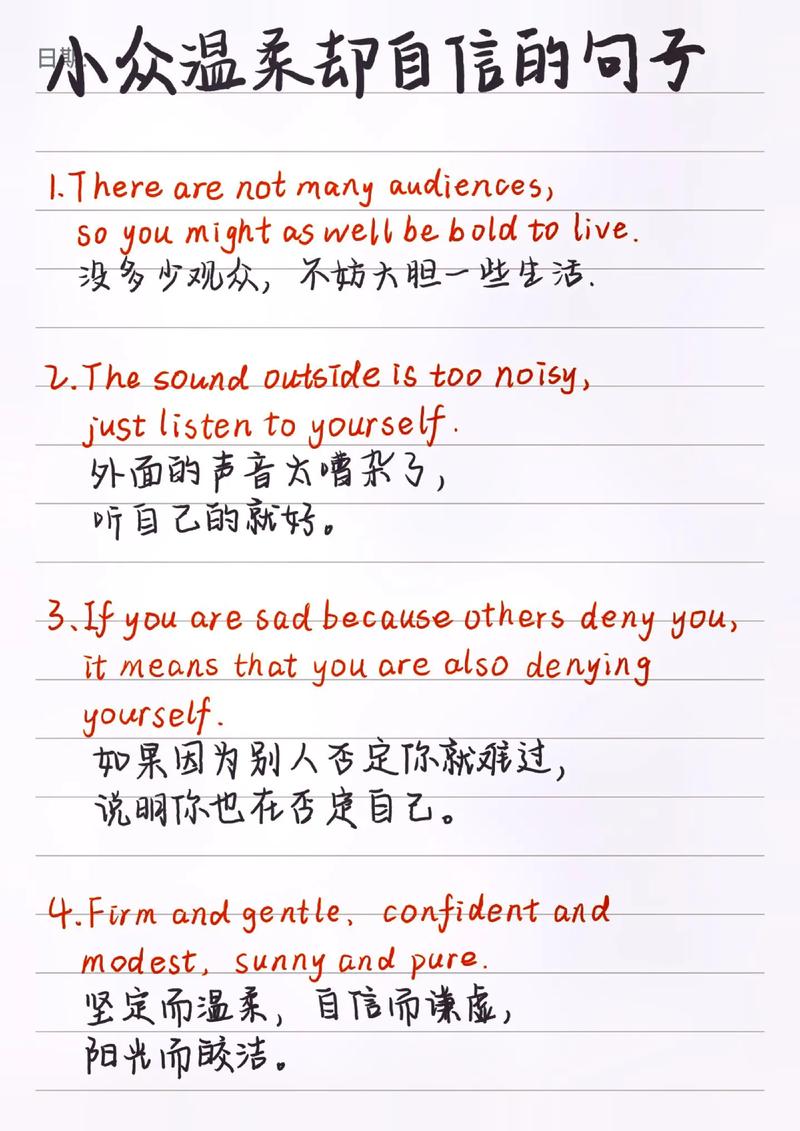 日期
小众温柔却自信的句子
1.There are not many audiences,
so you might as well be bold to live.
没多少观众，不妨大胆一些生活.
2.The sound outside is too noisy,
just listen to yourself.
外面的声音太嘈杂了，
听自己的就好。
3.If you are sad because others deny you,
it means that you are also denying
yourself.
如果因为别人否定你就难过，
说明你也在否定自己。
4.Firm and gentle, confident and
modest, sunny and pure.
坚定而温柔，自信而谦虚，
阳光而皎洁。